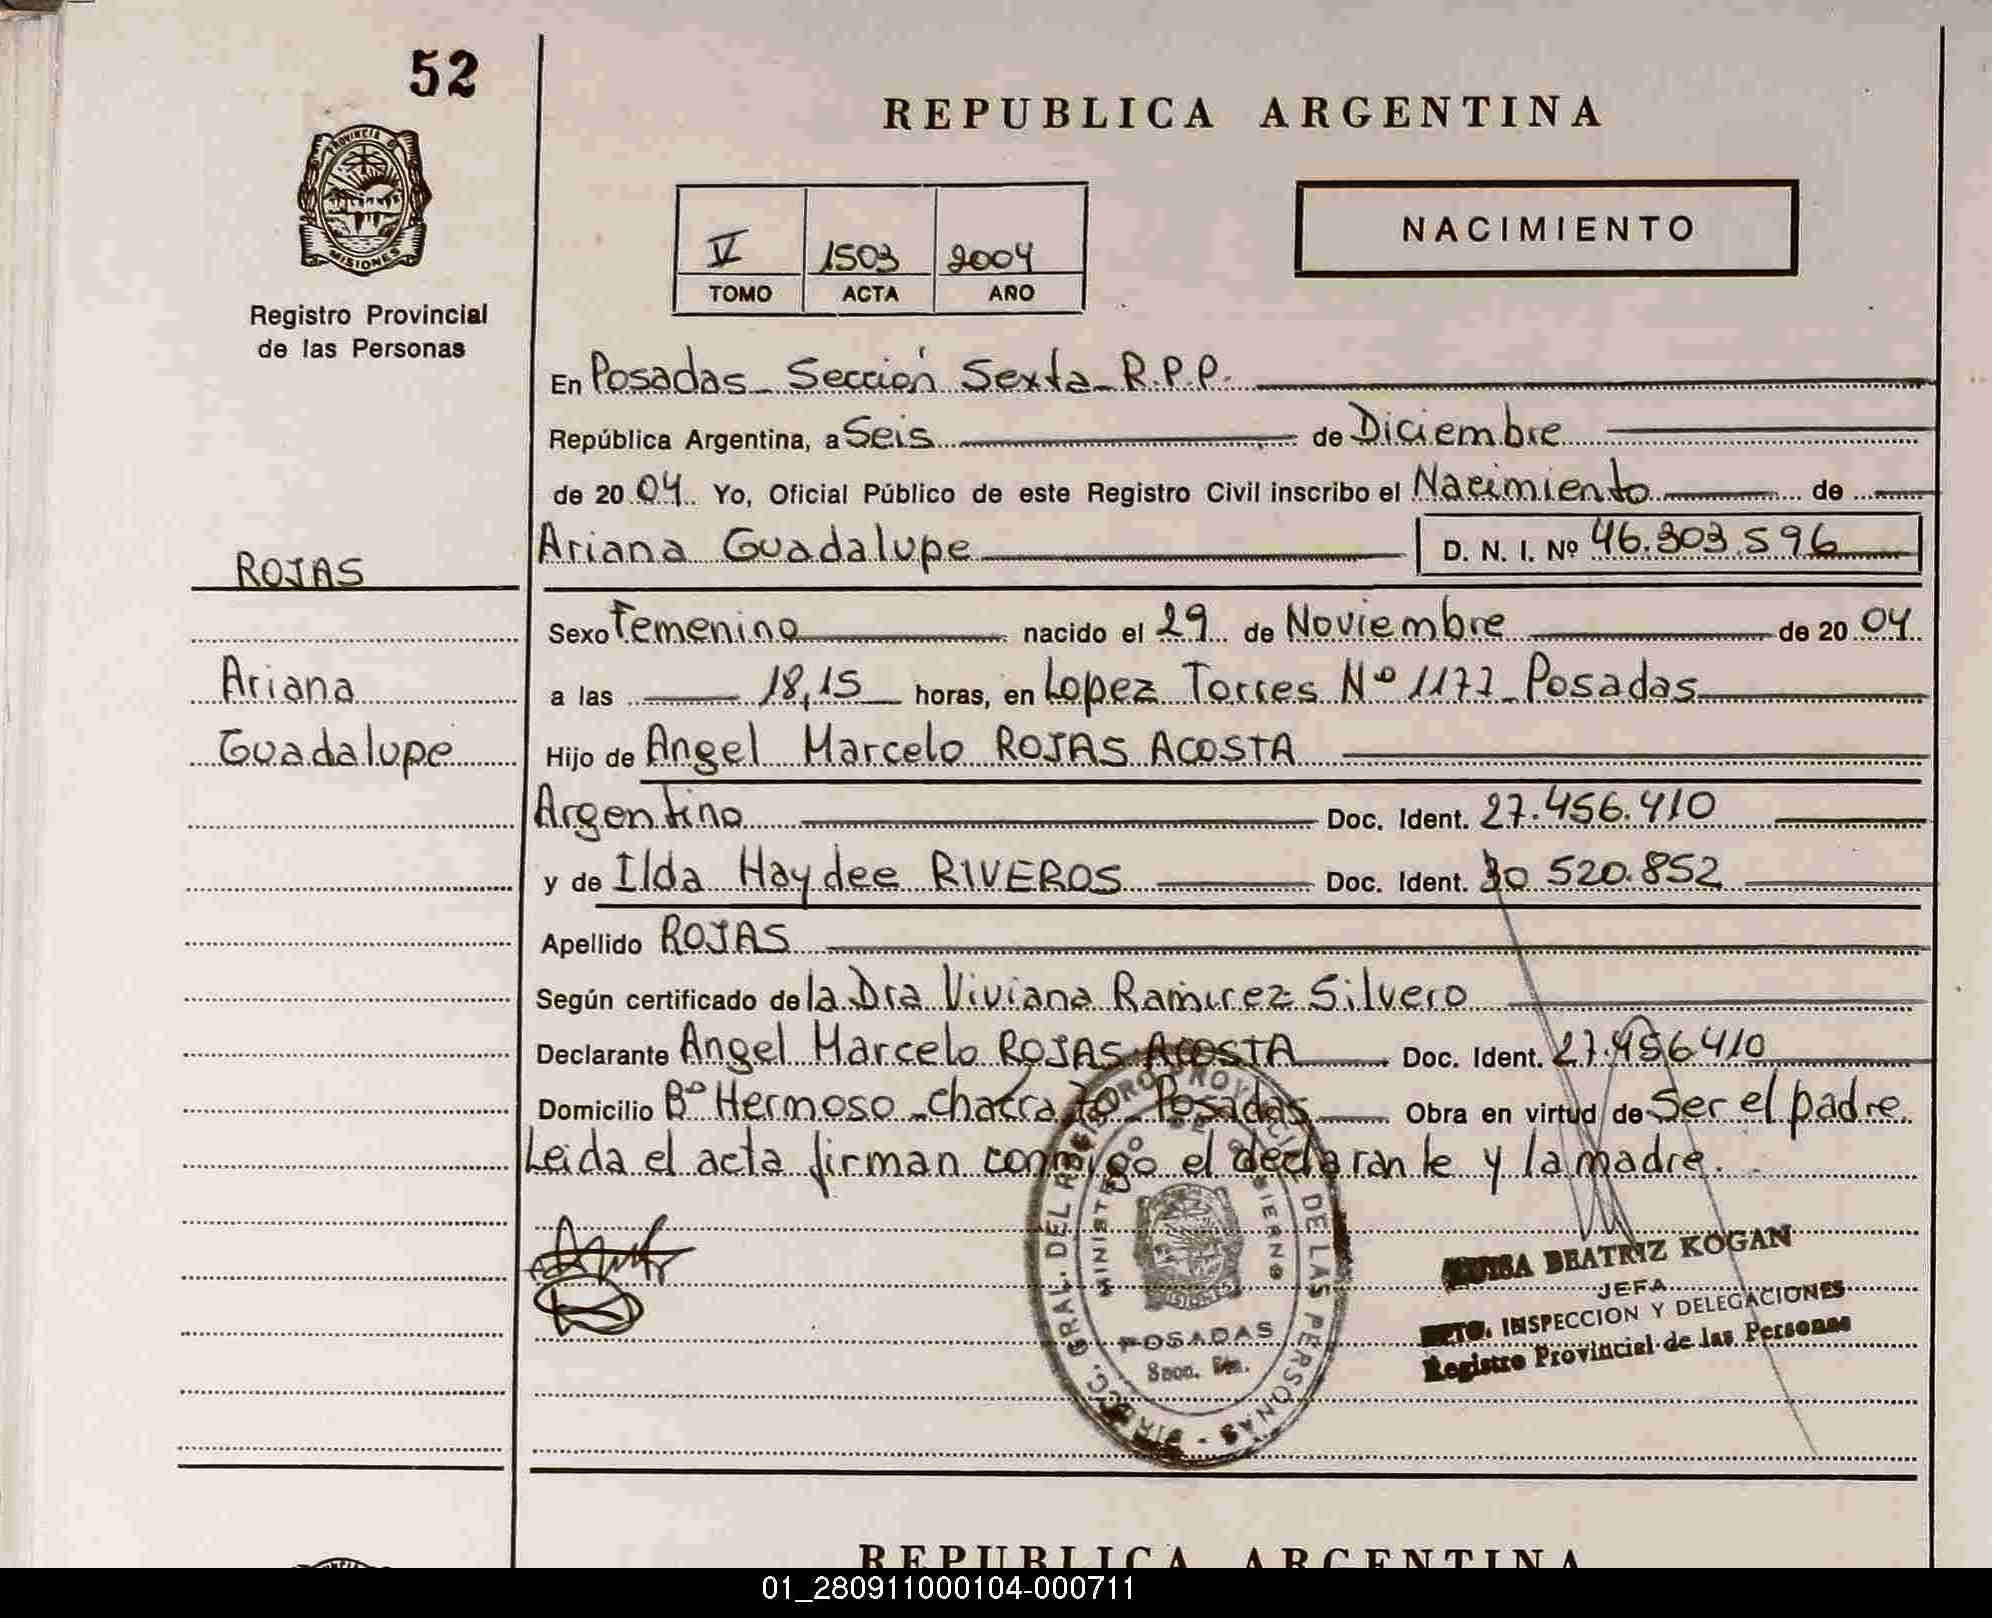 52
REPUBLICA ARGENTINA
PROVINCIA D
MISIONES
Registro Provincial
de las Personas
V 1503 2004
TOMO ACTA AÑO
NACIMIENTO
En Posadas Sección Sexta R.P.P.
República Argentina, a Seis de Diciembre
de 2004 Yo, Oficial Público de este Registro Civil inscribo el Nacimiento de
Ariana Guadalupe D. N. I. Nº 46.303.596
ROJAS
Ariana
Guadalupe
Sexo Femenino nacido el 29 de Noviembre de 2004
a las 18,15 horas, en Lopez Torres Nº 1177 Posadas
Hijo de Angel Marcelo ROJAS ACOSTA
Argentino Doc. Ident. 27.456.410
y de Ilda Haydee RIVEROS Doc. Ident. 30 520.852
Apellido ROJAS
Según certificado de la Dra Viviana Ramirez Silvero
Declarante Angel Marcelo ROJAS ACOSTA Doc. Ident. 27.456410
Domicilio Bº Hermoso chacra Posadas Obra en virtud de Ser el padre
Leida el acta firman conmigo el declarante y la madre.
DIRECC. GRAL. DEL REGISTRO PROVINCIAL DE LAS PERSONAS
MINISTERIO DE GOBIERNO
POSADAS
Secc.
BEATRIZ KOGAN
JEFA
DPTO. INSPECCION Y DELEGACIONES
Registro Provincial de las Personas
REPUBLICA ARGENTINA
01_280911000104-000711